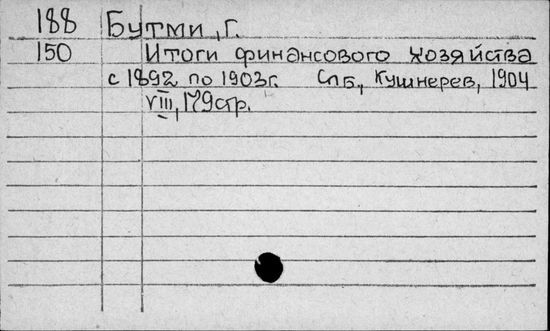 188 Бутми, Г.
150 Итоги финансового хозяйства
с 1892 по 1903 г. Спб, Кушнерев, 1904
VIII, 179 стр.